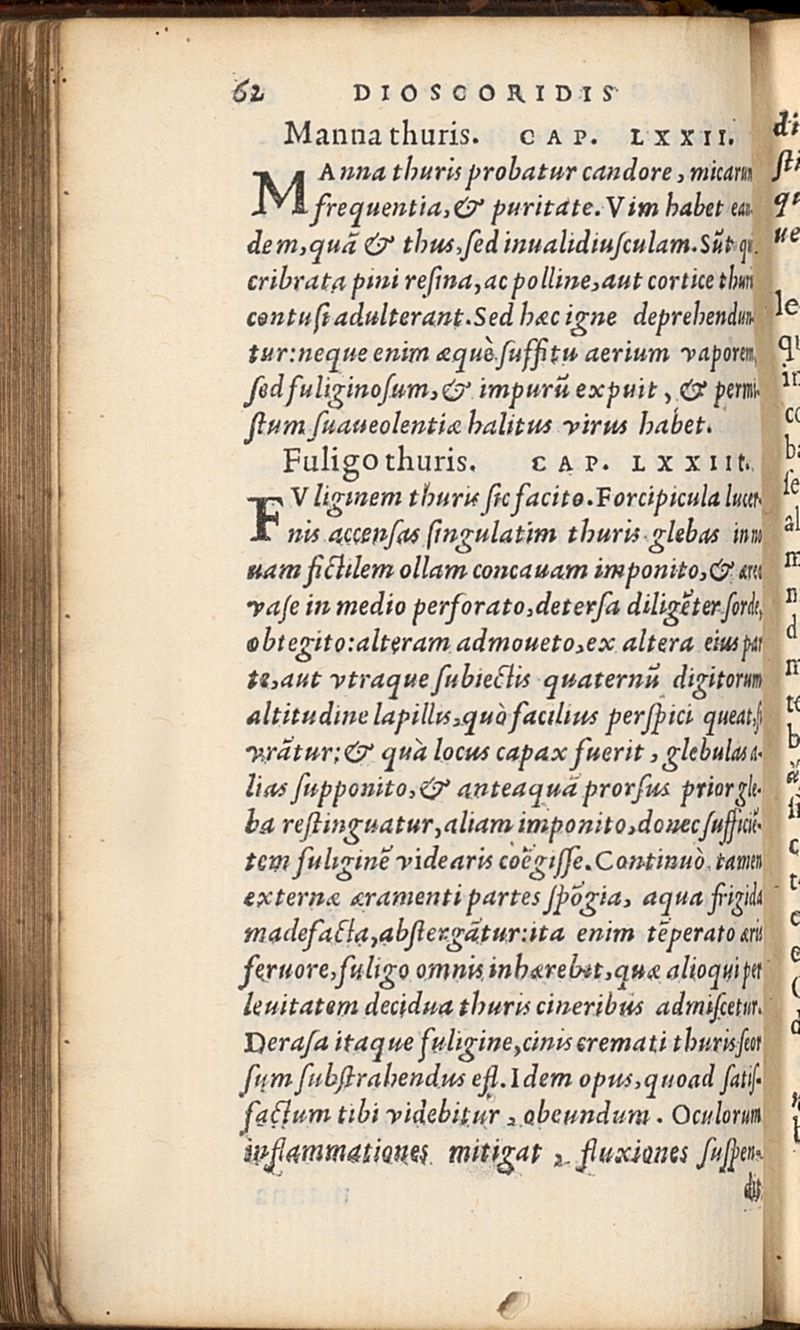 62 DIOSCORIDIS
Manna thuris. CAP. LXXII.
MAnna thuris probatur candore, micarum
frequentia, & puritate. Vim habet ean-
dem, quã & thus, sed inualidiusculam. Sũt qui
cribrata pini resina, ac polline, aut cortice thuris
contusi adulterant. Sed hæc igne deprehendun-
tur: neque enim æquè suffitu aerium vaporem,
sed fuliginosum, & impurũ expuit, & permi-
stum suaueolentiæ halitus virus habet.
Fuligo thuris. CAP. LXXIII.
FVliginem thuris sic facito. Forcipicula lucer-
nis accensas singulatim thuris glebas in no
uam fictilem ollam concauam imponito, & æreo
vase in medio perforato, detersa diligẽter sorde,
obtegito: alteram admoueto, ex altera eius par
te, aut vtraque subiectis quaternũ digitorum
altitudine lapillis, quò facilius perspici queat, si
vrãtur: & quà locus capax fuerit, glebulas a-
lias supponito, & anteaquã prorsus prior gle-
ba restinguatur, aliam imponito, donec sufficiẽ-
tem fuliginẽ videaris coẽgisse. Continuò tamen
externæ æramenti partes spõgia, aqua frigida
madefacta, abstergãtur: ita enim tẽperato æris
feruore, fuligo omnis inhærebit, quæ alioqui per
leuitatem decidua thuris cineribus admiscetur.
Derasa itaque fuligine, cinis cremati thuris seor
sum substrahendus est. Idem opus, quoad satis-
factum tibi videbitur, obeundum. Oculorum
inflammationes mitigat, fluxiones suspen-
dit
di
sti
ue
le
in
al